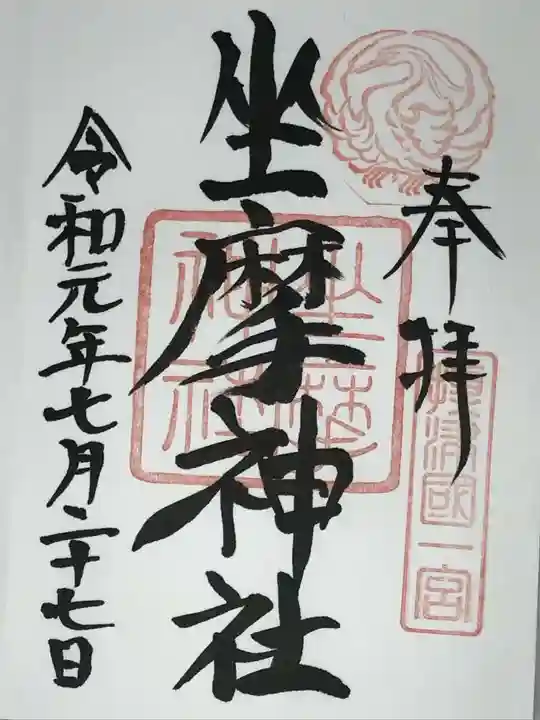 奉拝
攝津國一宮
坐摩神社
坐摩神社
令和元年七月二十七日